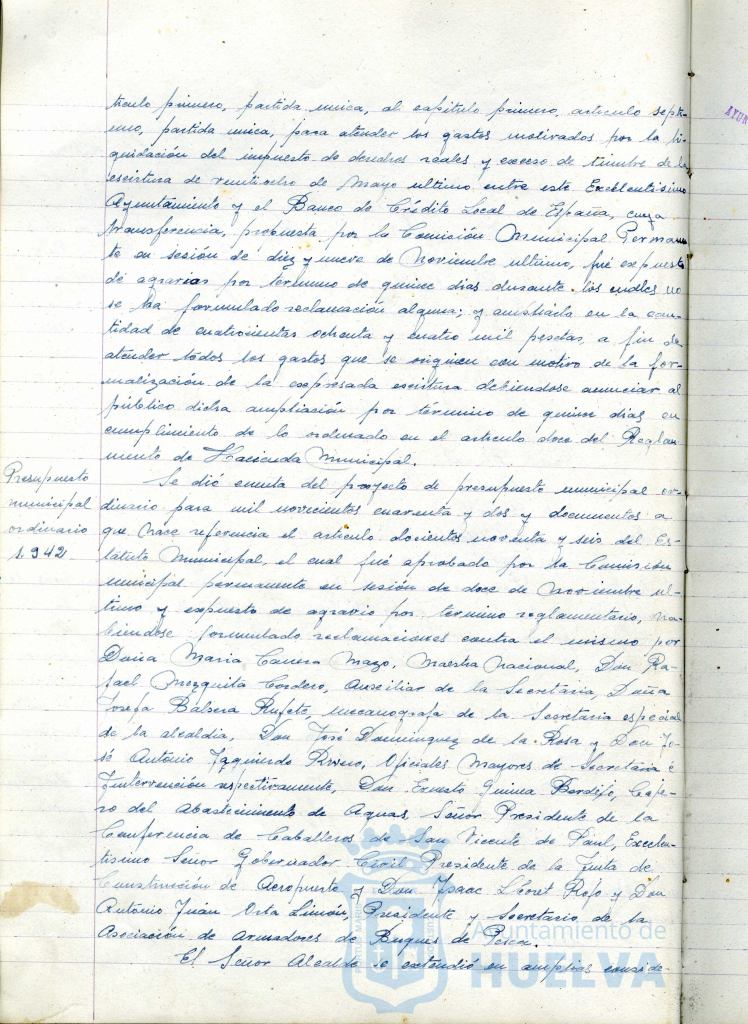 tículo primero, partida única, al capítulo primero, artículo septi-
mo, partida única, para atender los gastos motivados por la li-
quidación del impuesto de derechos reales y exceso de timbre de la
escritura de veintiocho de Mayo ultimo entre este Excelentísimo
Ayuntamiento y el Banco de Crédito Local de España, cuya
transferencia, propuesta por la Comisión Municipal Permanen
te en sesión de diez y nueve de Noviembre ultimo, fué expuesta
de agravios por termino de quince dias durante los cuales no
se ha formulado reclamación alguna; y ampliarla en la can-
tidad de cuatrocientas ochenta y cuatro mil pesetas, a fin de
atender todos los gastos que se originen con motivo de la for-
malización de la expresada escritura debiendose anunciar al
público dicha ampliación por término de quince dias en
cumplimiento de lo ordenado en el articulo doce del Regla-
mento de Hacienda Municipal.
Presupuesto
municipal
ordinario
1.942
Se dió cuenta del proyecto de presupuesto municipal or-
dinario para mil novecientos cuarenta y dos y documentos a
que hace referencia el articulo doscientos noventa y seis del Es-
tatuto Municipal, el cual fué aprobado por la Comisión
municipal permanente en sesión de doce de Noviembre ul-
timo y expuesto de agravio por termino reglamentario, ha-
biendose formulado reclamaciones contra el mismo por
Doña Maria Mazo, Maestra Nacional, Don Ra-
fael Mezquita Cordero, Auxiliar de la Secretaria, Doña
Josefa Balsera Rufete, mecanografa de la Secretaria especial
de la alcaldia, Don José Dominguez de la Rosa y Don Jo-
sé Antonio Izquierdo, Oficiales Mayores de Secretaria é
Intervención respectivamente, Don Ernesto Guinea, Caje-
ro del Abastecimiento de Aguas, Señor Presidente de la
Conferencia de Caballeros de San Vicente de Paul, Excelen-
tisimo Señor Gobernador Civil Presidente de la Junta de
Construcción de Aeropuerto y Don Isaac Lloret Rojo y Don
Antonio Juan Orta Limón, Presidente y Secretario de la
Asociación de Armadores de Buques de Pesca.
El Señor Alcalde se extendió en amplias conside-
Ayuntamiento de
HUELVA